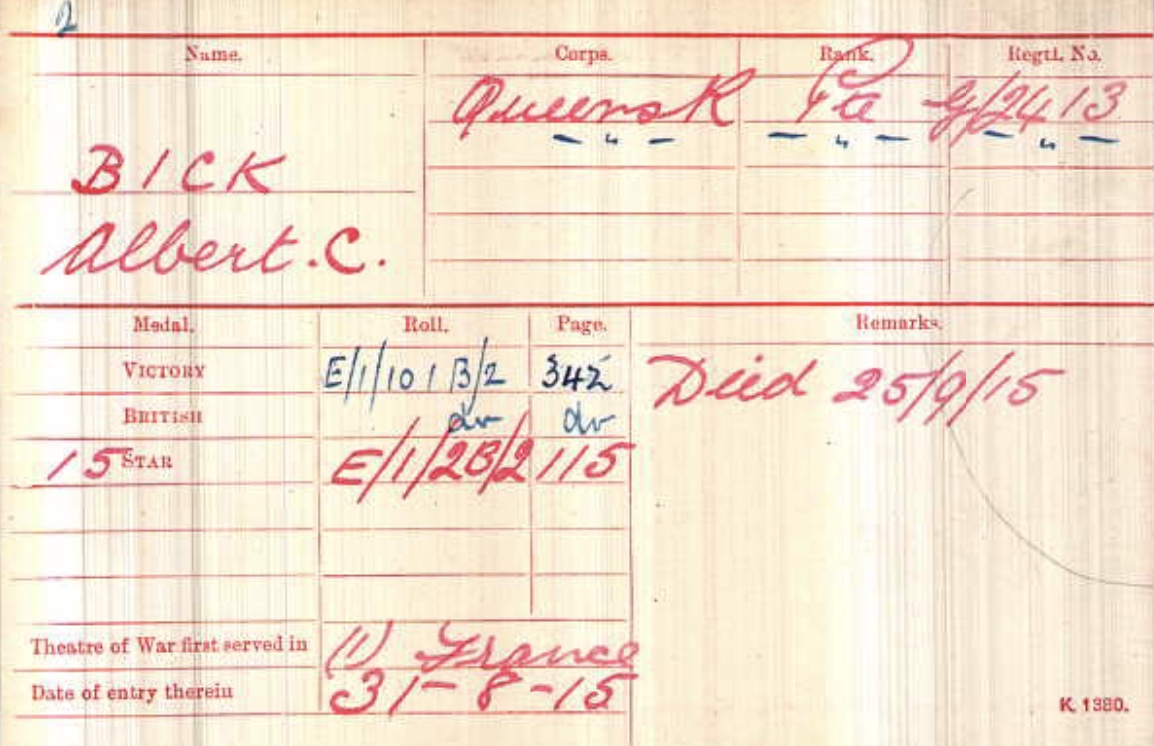 2
Name. Corps. Rank. Regtl. No.
Queens R Pte G/2413
— " — — " — — " —
BICK
Albert. C.
Medal. Roll. Page. Remarks.
VICTORY E/1/101B/2 342 Died 25/9/15
BRITISH do do
15 STAR E/1/2B/2 115
Theatre of War first served in (1) France
Date of entry therein 31-8-15
K. 1380.